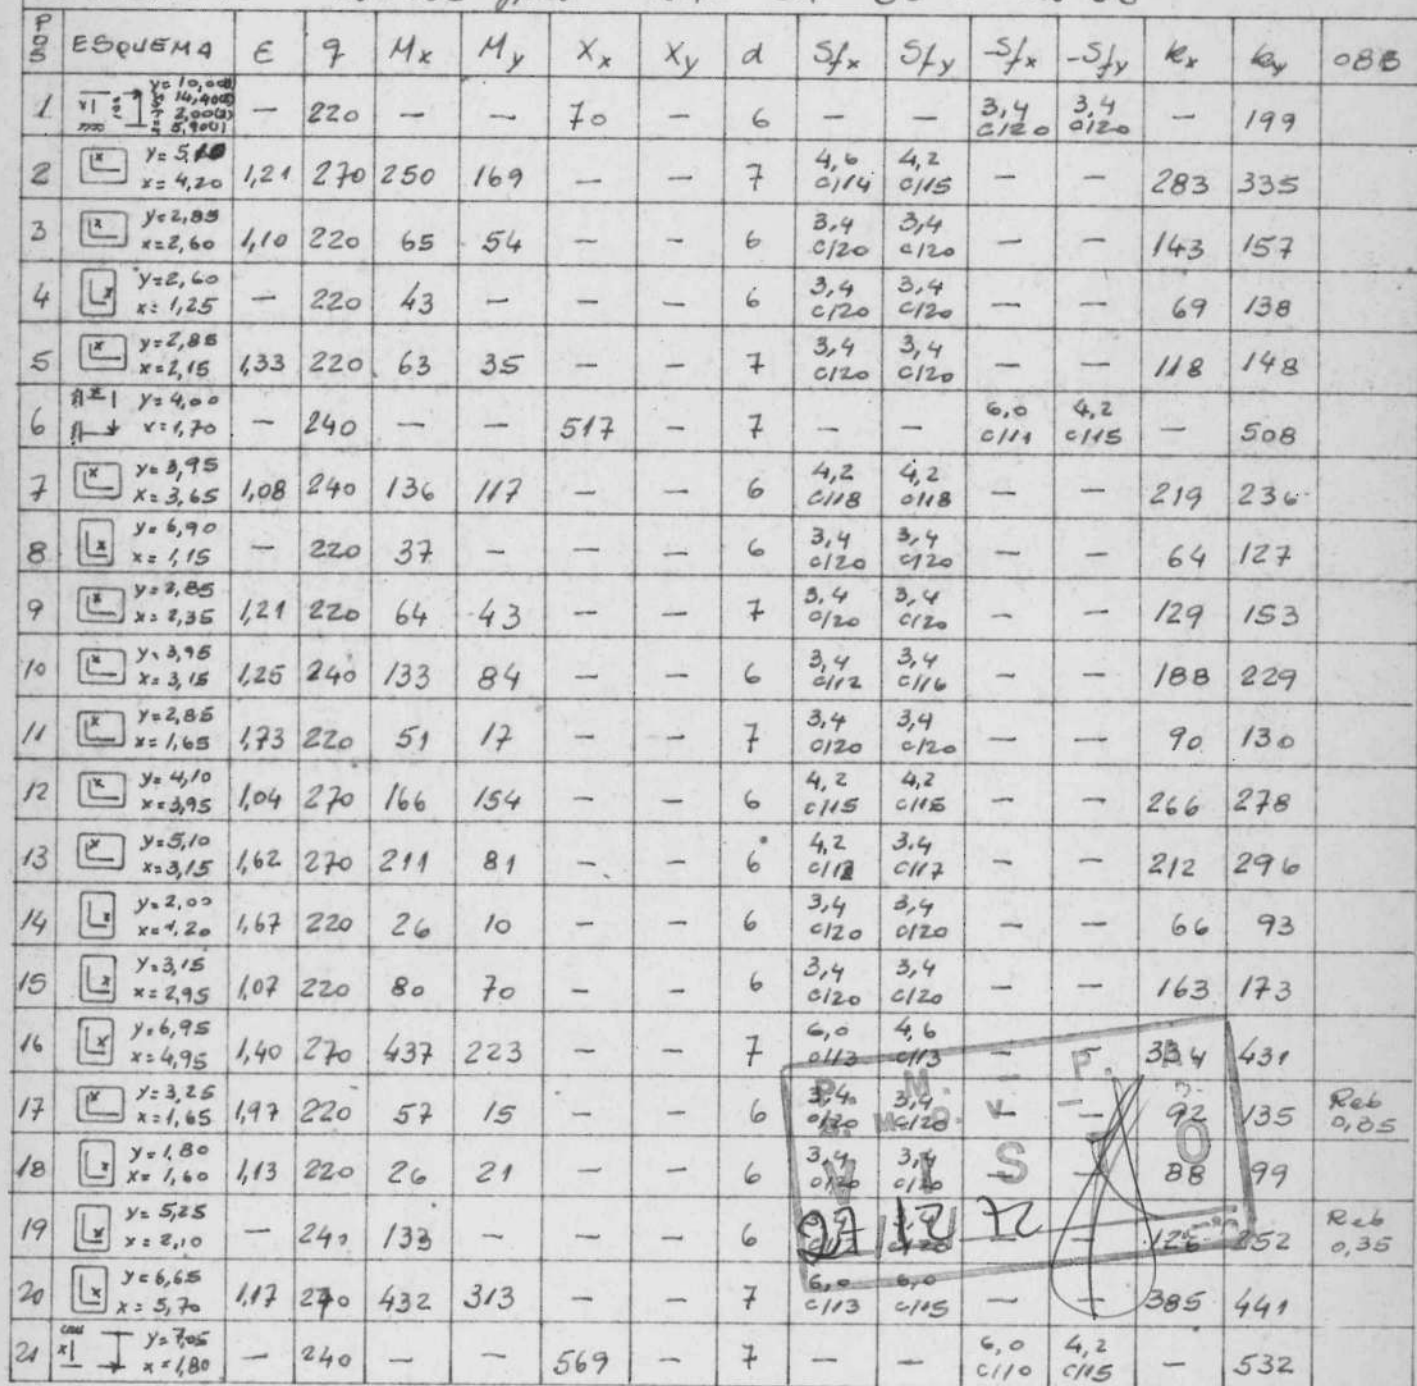 POS ESQUEMA ε q Mx My Xx Xy d Sfx Sfy -Sfx -Sfy kx ky OBS
1 y= 10,00 14,40 2,00 5,90 — 220 — — 70 — 6 — — 3,4 c/20 3,4 c/20 — 199
2 x y= 5,10 x= 4,20 1,21 270 250 169 — — 7 4,6 c/14 4,2 c/15 — — 283 335
3 x y=2,85 x=2,60 1,10 220 65 54 — — 6 3,4 c/20 3,4 c/20 — — 143 157
4 x y=2,60 x= 1,25 — 220 43 — — — 6 3,4 c/20 3,4 c/20 — — 69 138
5 x y=2,85 x=2,15 1,33 220 63 35 — — 7 3,4 c/20 3,4 c/20 — — 118 148
6 x y=4,00 x=1,70 — 240 — — 517 — 7 — — 6,0 c/11 4,2 c/15 — 508
7 x y=3,95 x=3,65 1,08 240 136 117 — — 6 4,2 c/18 4,2 c/18 — — 219 236
8 x y= 6,90 x= 1,15 — 220 37 — — — 6 3,4 c/20 3,4 c/20 — — 64 127
9 x y=2,85 x=2,35 1,21 220 64 43 — — 7 3,4 c/20 3,4 c/20 — — 129 153
10 x y=3,95 x=3,15 1,25 240 133 84 — — 6 3,4 c/12 3,4 c/16 — — 188 229
11 x y=2,85 x=1,65 1,73 220 51 17 — — 7 3,4 c/20 3,4 c/20 — — 90 130
12 x y=4,10 x=3,95 1,04 270 166 154 — — 6 4,2 c/15 4,2 c/15 — — 266 278
13 x y=5,10 x=3,15 1,62 270 211 81 — — 6 4,2 3,4 c/17 — — 212 296
14 x y=2,00 x=1,20 1,67 220 26 10 — — 6 3,4 c/20 3,4 c/20 — — 66 93
15 x y=3,15 x=2,95 1,07 220 80 70 — — 6 3,4 c/20 3,4 c/20 — — 163 173
16 x y=6,95 x=4,95 1,40 270 437 223 — — 7 6,0 c/13 4,6 c/13 — — 334 431
17 x y=3,25 x=1,65 1,97 220 57 15 — — 6 3,4 c/20 3,4 c/20 — — 92 135 Reb 0,35
18 x y= 1,80 x= 1,60 1,13 220 26 21 — — 6 3,4 c/20 3,4 c/20 — — 88 99
19 x y= 5,25 x= 2,10 — 240 133 — — — 6 — — 126 252 Reb 0,35
20 x y=6,65 x= 5,70 1,17 270 432 313 — — 7 6,0 c/13 6,0 c/15 — — 385 441
21 x y=7,05 x=1,80 — 240 — — 569 — 7 — — 6,0 c/10 4,2 c/15 — 532
VISTO
27/12/72